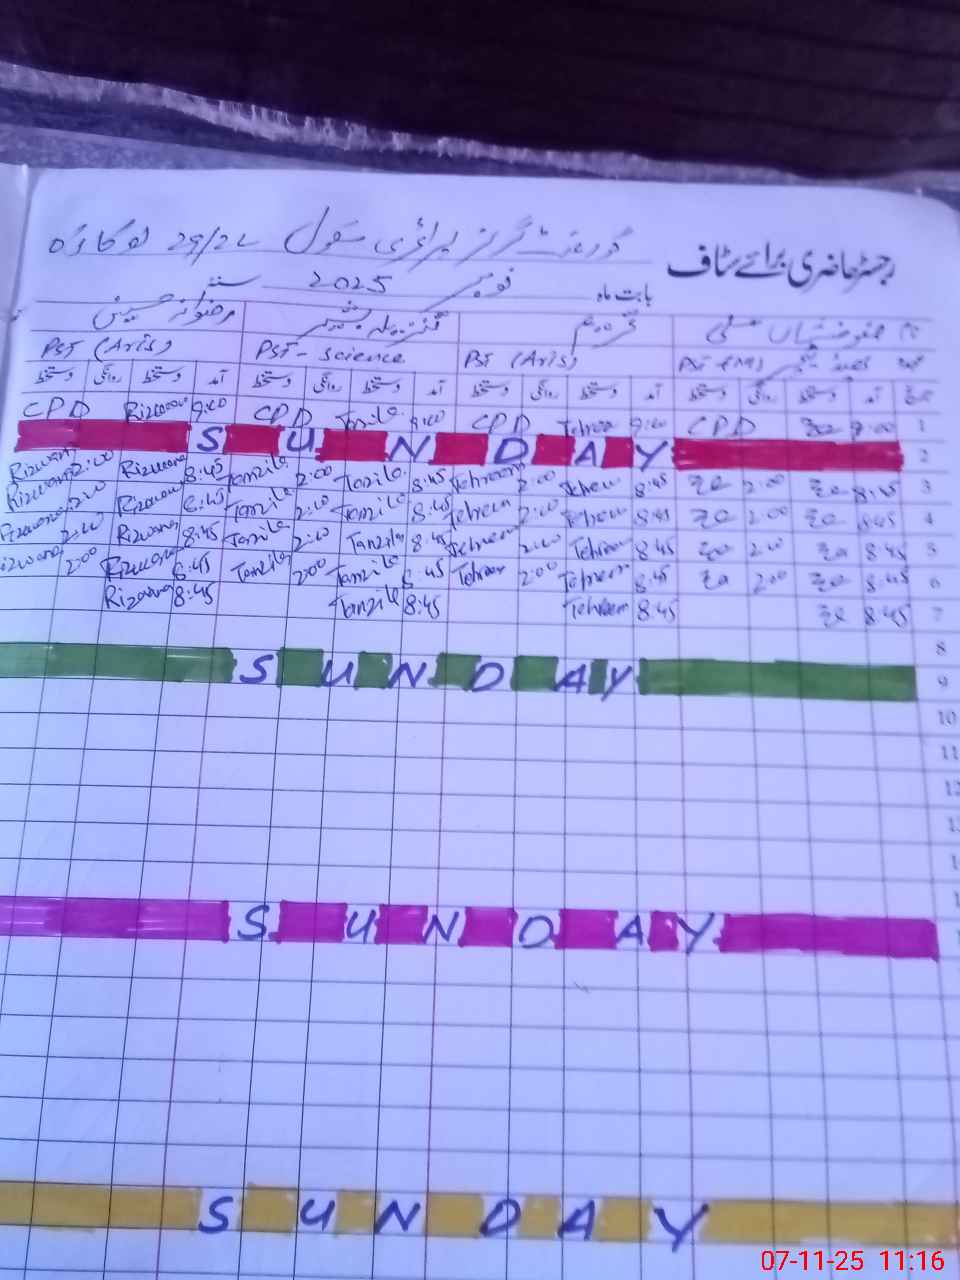 رجسٹر حاضری برائے سٹاف
گورنمنٹ گرلز پرائمری سکول 29/2L اوکاڑہ
بابت ماہ نومبر 2025
PST (Arts) PST - Science PST (Arts) PST (M)
آمد دستخط روانگی دستخط آمد دستخط روانگی دستخط آمد دستخط روانگی دستخط آمد دستخط روانگی دستخط
CPD Rizwana 9:00 CPD Tanzila 9:00 CPD Tehreem 9:00 CPD 9:00 1
SUNDAY 2
Rizwana 2:00 Rizwana 8:45 Tanzila 2:00 Tanzila 8:45 Tehreem 2:00 Tehreem 8:45 2:00 8:45 3
Rizwana 2:00 Rizwana 8:45 Tanzila 2:00 Tanzila 8:45 Tehreem 2:00 Tehreem 8:45 2:00 8:45 4
Rizwana 2:00 Rizwana 8:45 Tanzila 2:00 Tanzila 8:45 Tehreem 2:00 Tehreem 8:45 2:00 8:45 5
Rizwana 2:00 Rizwana 8:45 Tanzila 2:00 Tanzila 8:45 Tehreem 2:00 Tehreem 8:45 2:00 8:45 6
Rizwana 8:45 Tanzila 8:45 Tehreem 8:45 8:45 7
8
SUNDAY 9
10
11
SUNDAY
SUNDAY
07-11-25 11:16